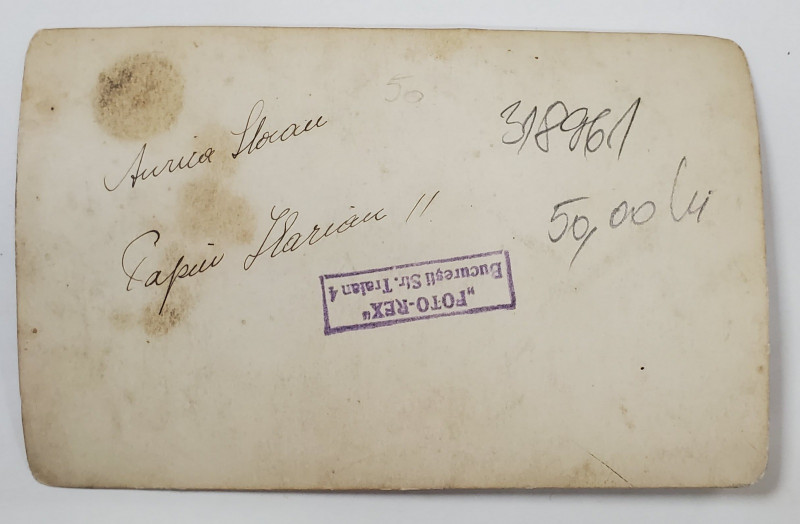 50
318961
Aurica Stoian
Papiu Ilarian 11
50,00 lei
„FOTO-REX“
Bucureşti Str. Traian 4